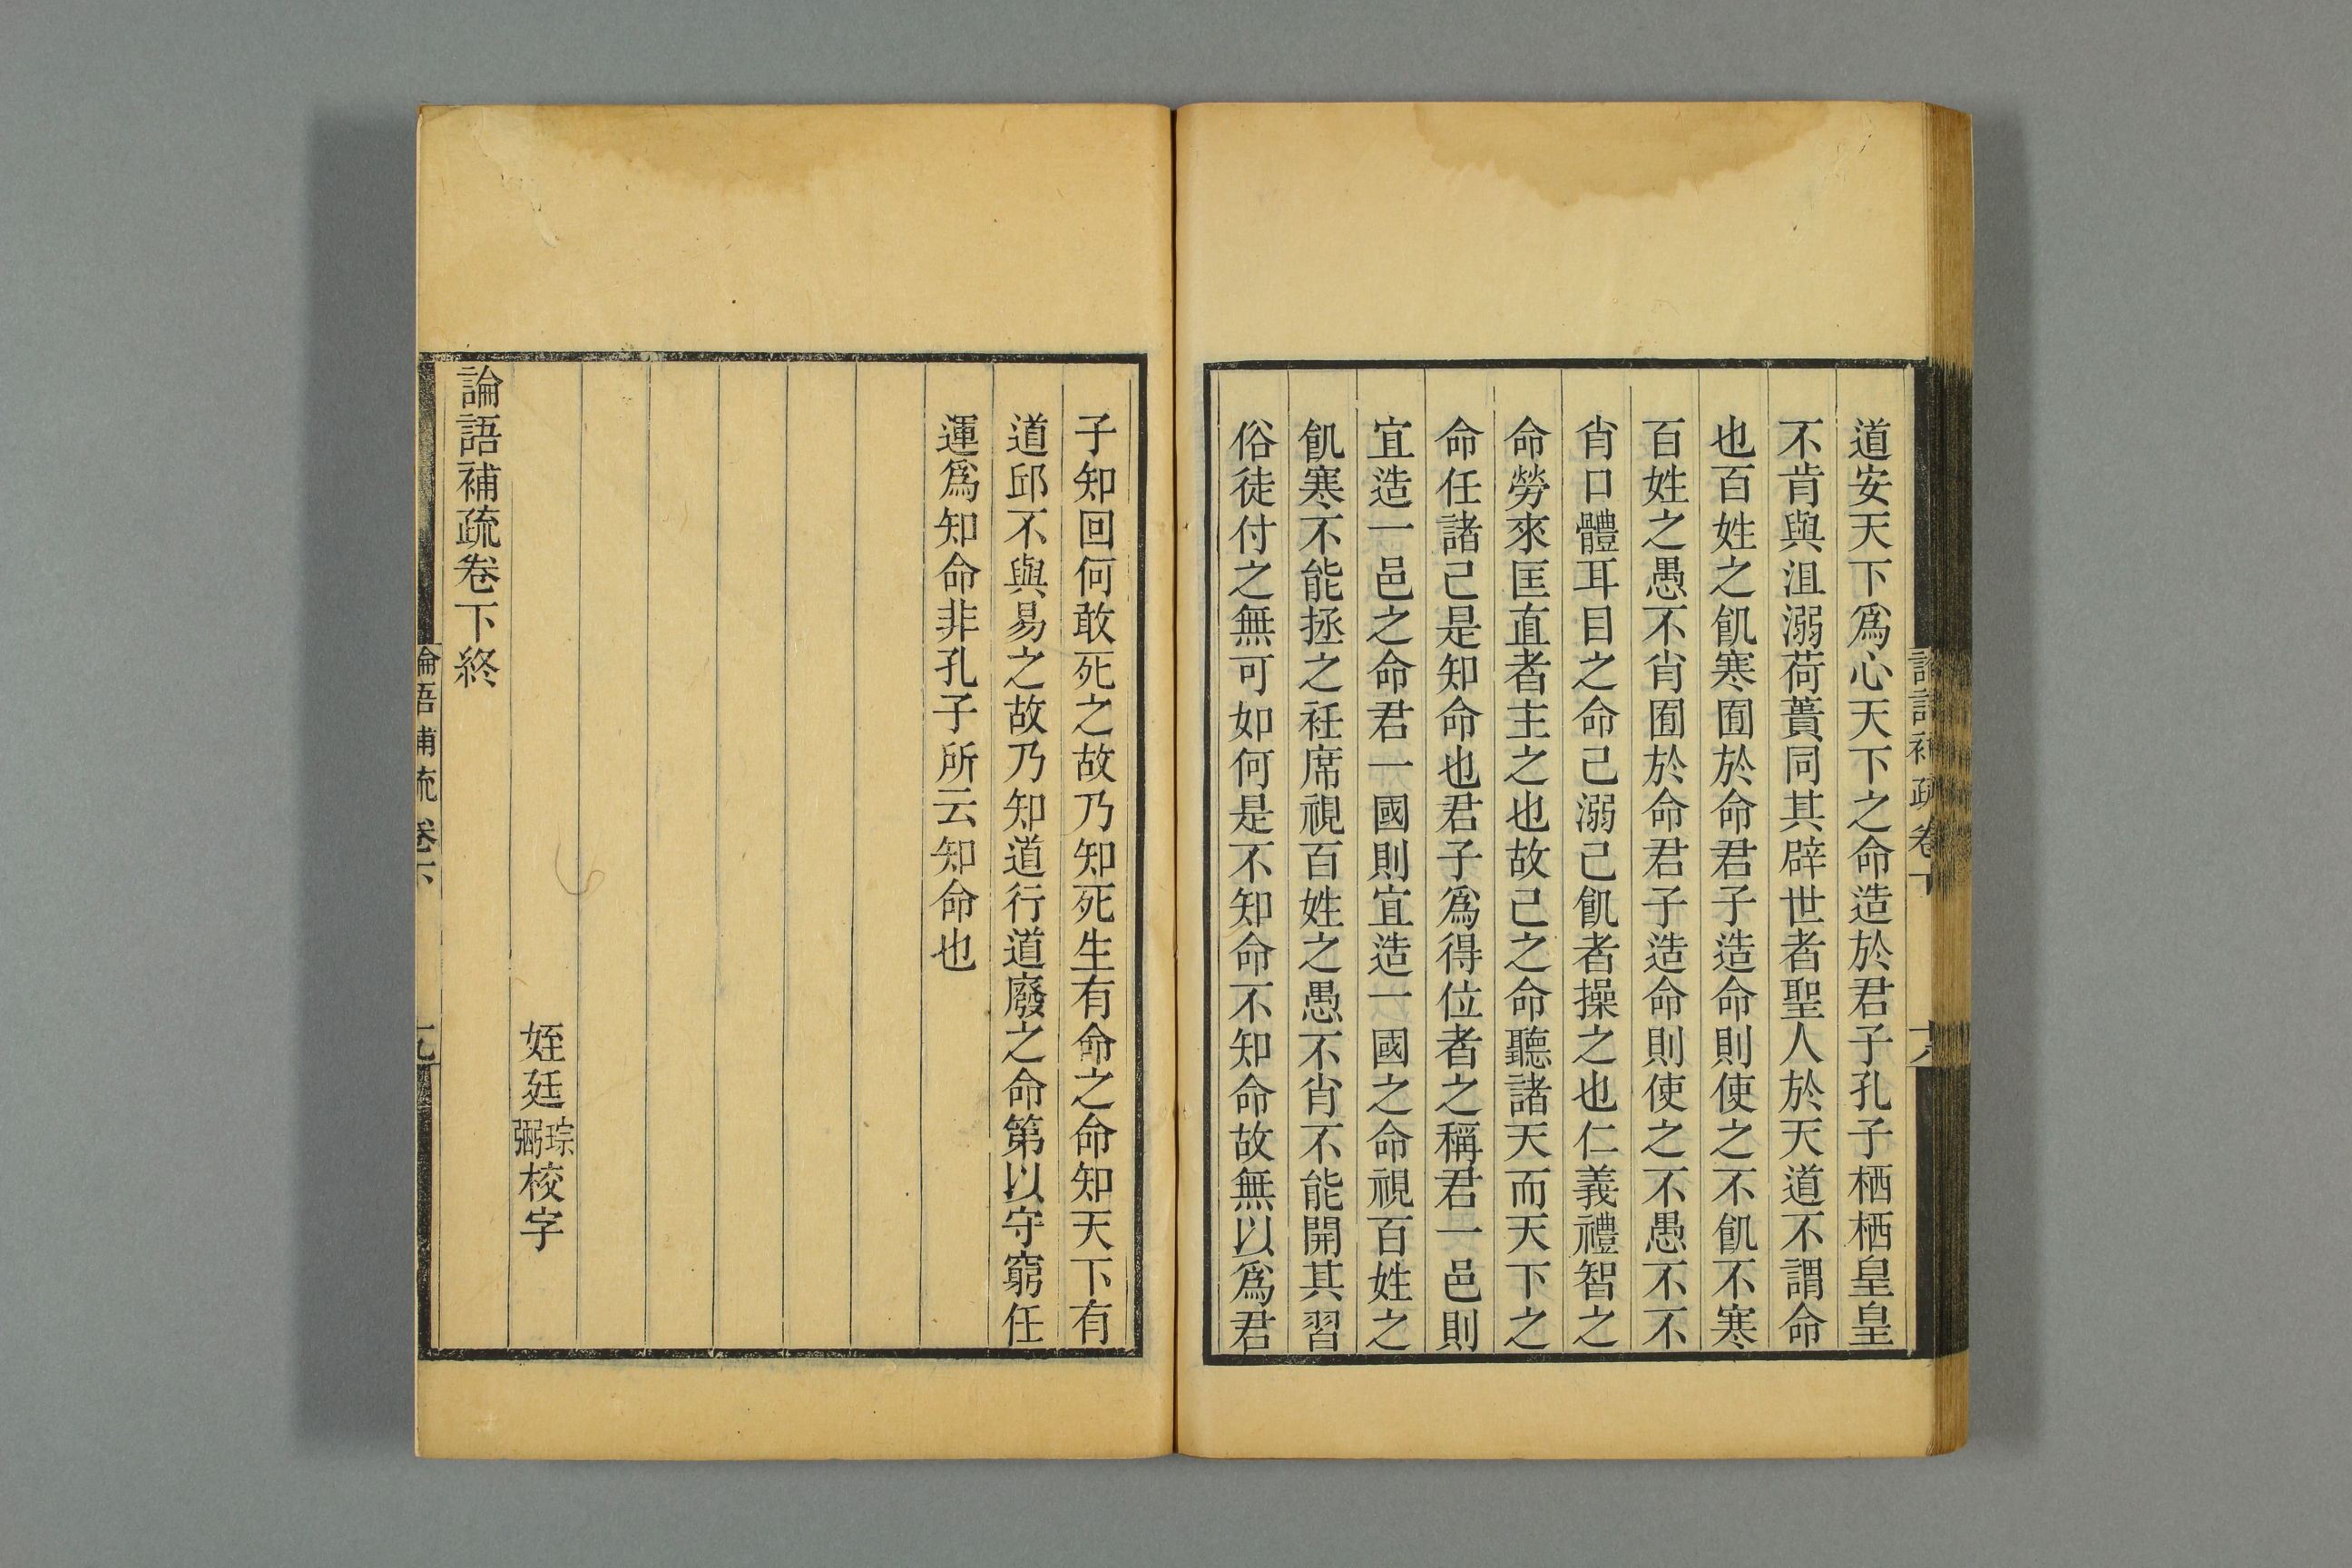 道安天下爲心天下之命造於君子孔子栖栖皇皇
不肯與沮溺荷蕢同其辟世者聖人於天道不謂命
也百姓之飢寒囿於命君子造命則使之不飢不寒
百姓之愚不肖囿於命君子造命則使之不愚不不
肖口體耳目之命己溺己飢者操之也仁義禮智之
命勞來匡直者主之也故己之命聽諸天而天下之
命任諸己是知命也君子爲得位者之稱君一邑則
宜造一邑之命君一國則宜造一國之命視百姓之
飢寒不能拯之衽席視百姓之愚不肖不能開其習
俗徒付之無可如何是不知命不知命故無以爲君
子知回何敢死之故乃知死生有命之命知天下有
道邱不與易之故乃知道行道廢之命第以守窮任
運爲知命非孔子所云知命也
姪廷琮弼校字
論語補疏卷下終
論語補疏 卷下